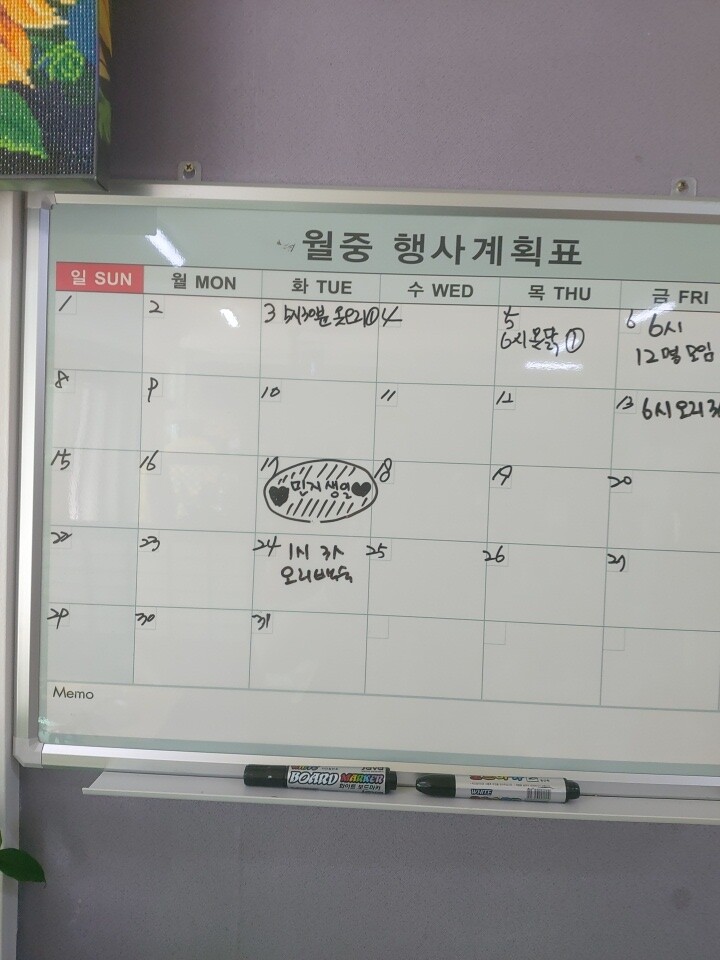 월중 행사계획표
일 SUN 월 MON 화 TUE 수 WED 목 THU 금 FRI
1 2 3 5시30분 옻오리① 4 5 6 6시
6시옻닭① 12명 모임
8 9 10 11 12 13 6시 오리
15 16 17 민지생일 18 19 20
22 23 24 1시 25 26 27
오리백숙
29 30 31
Memo
BOARD MARKER
화이트 보드마카
WHITE